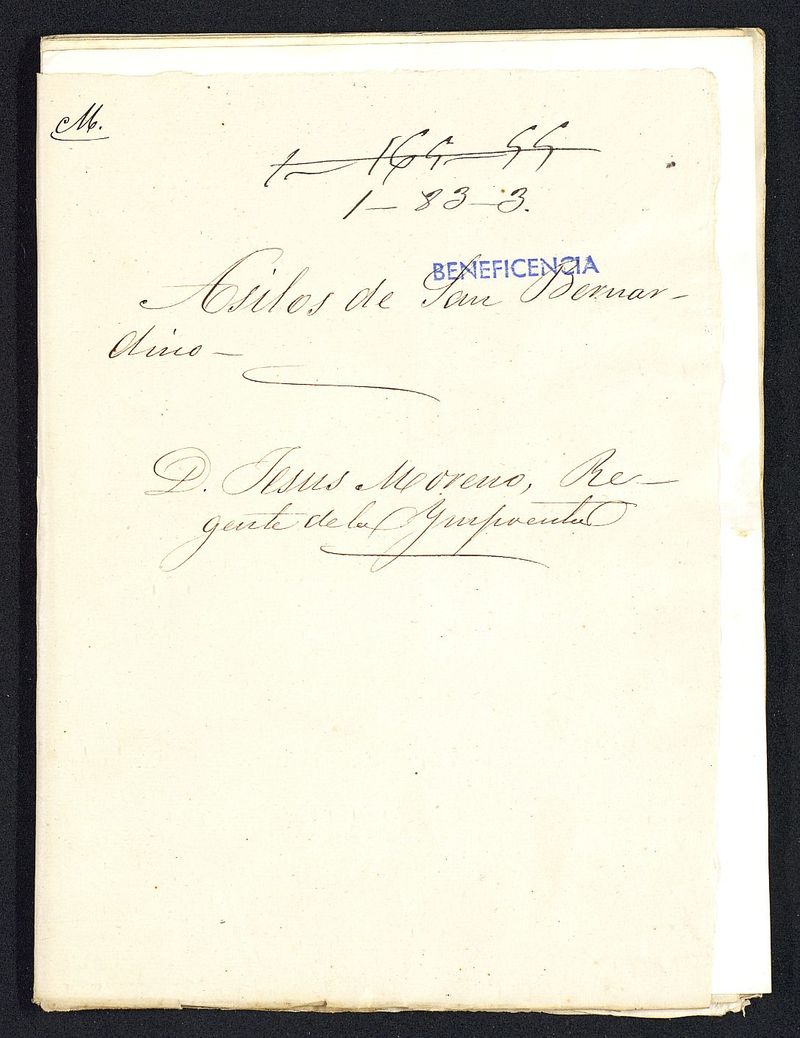 M.
1-165-55
1-83-3.
BENEFICENCIA
Asilos de San Bernar-
dino-
D. Jesus Moreno, Re-
gente de la Ymprenta